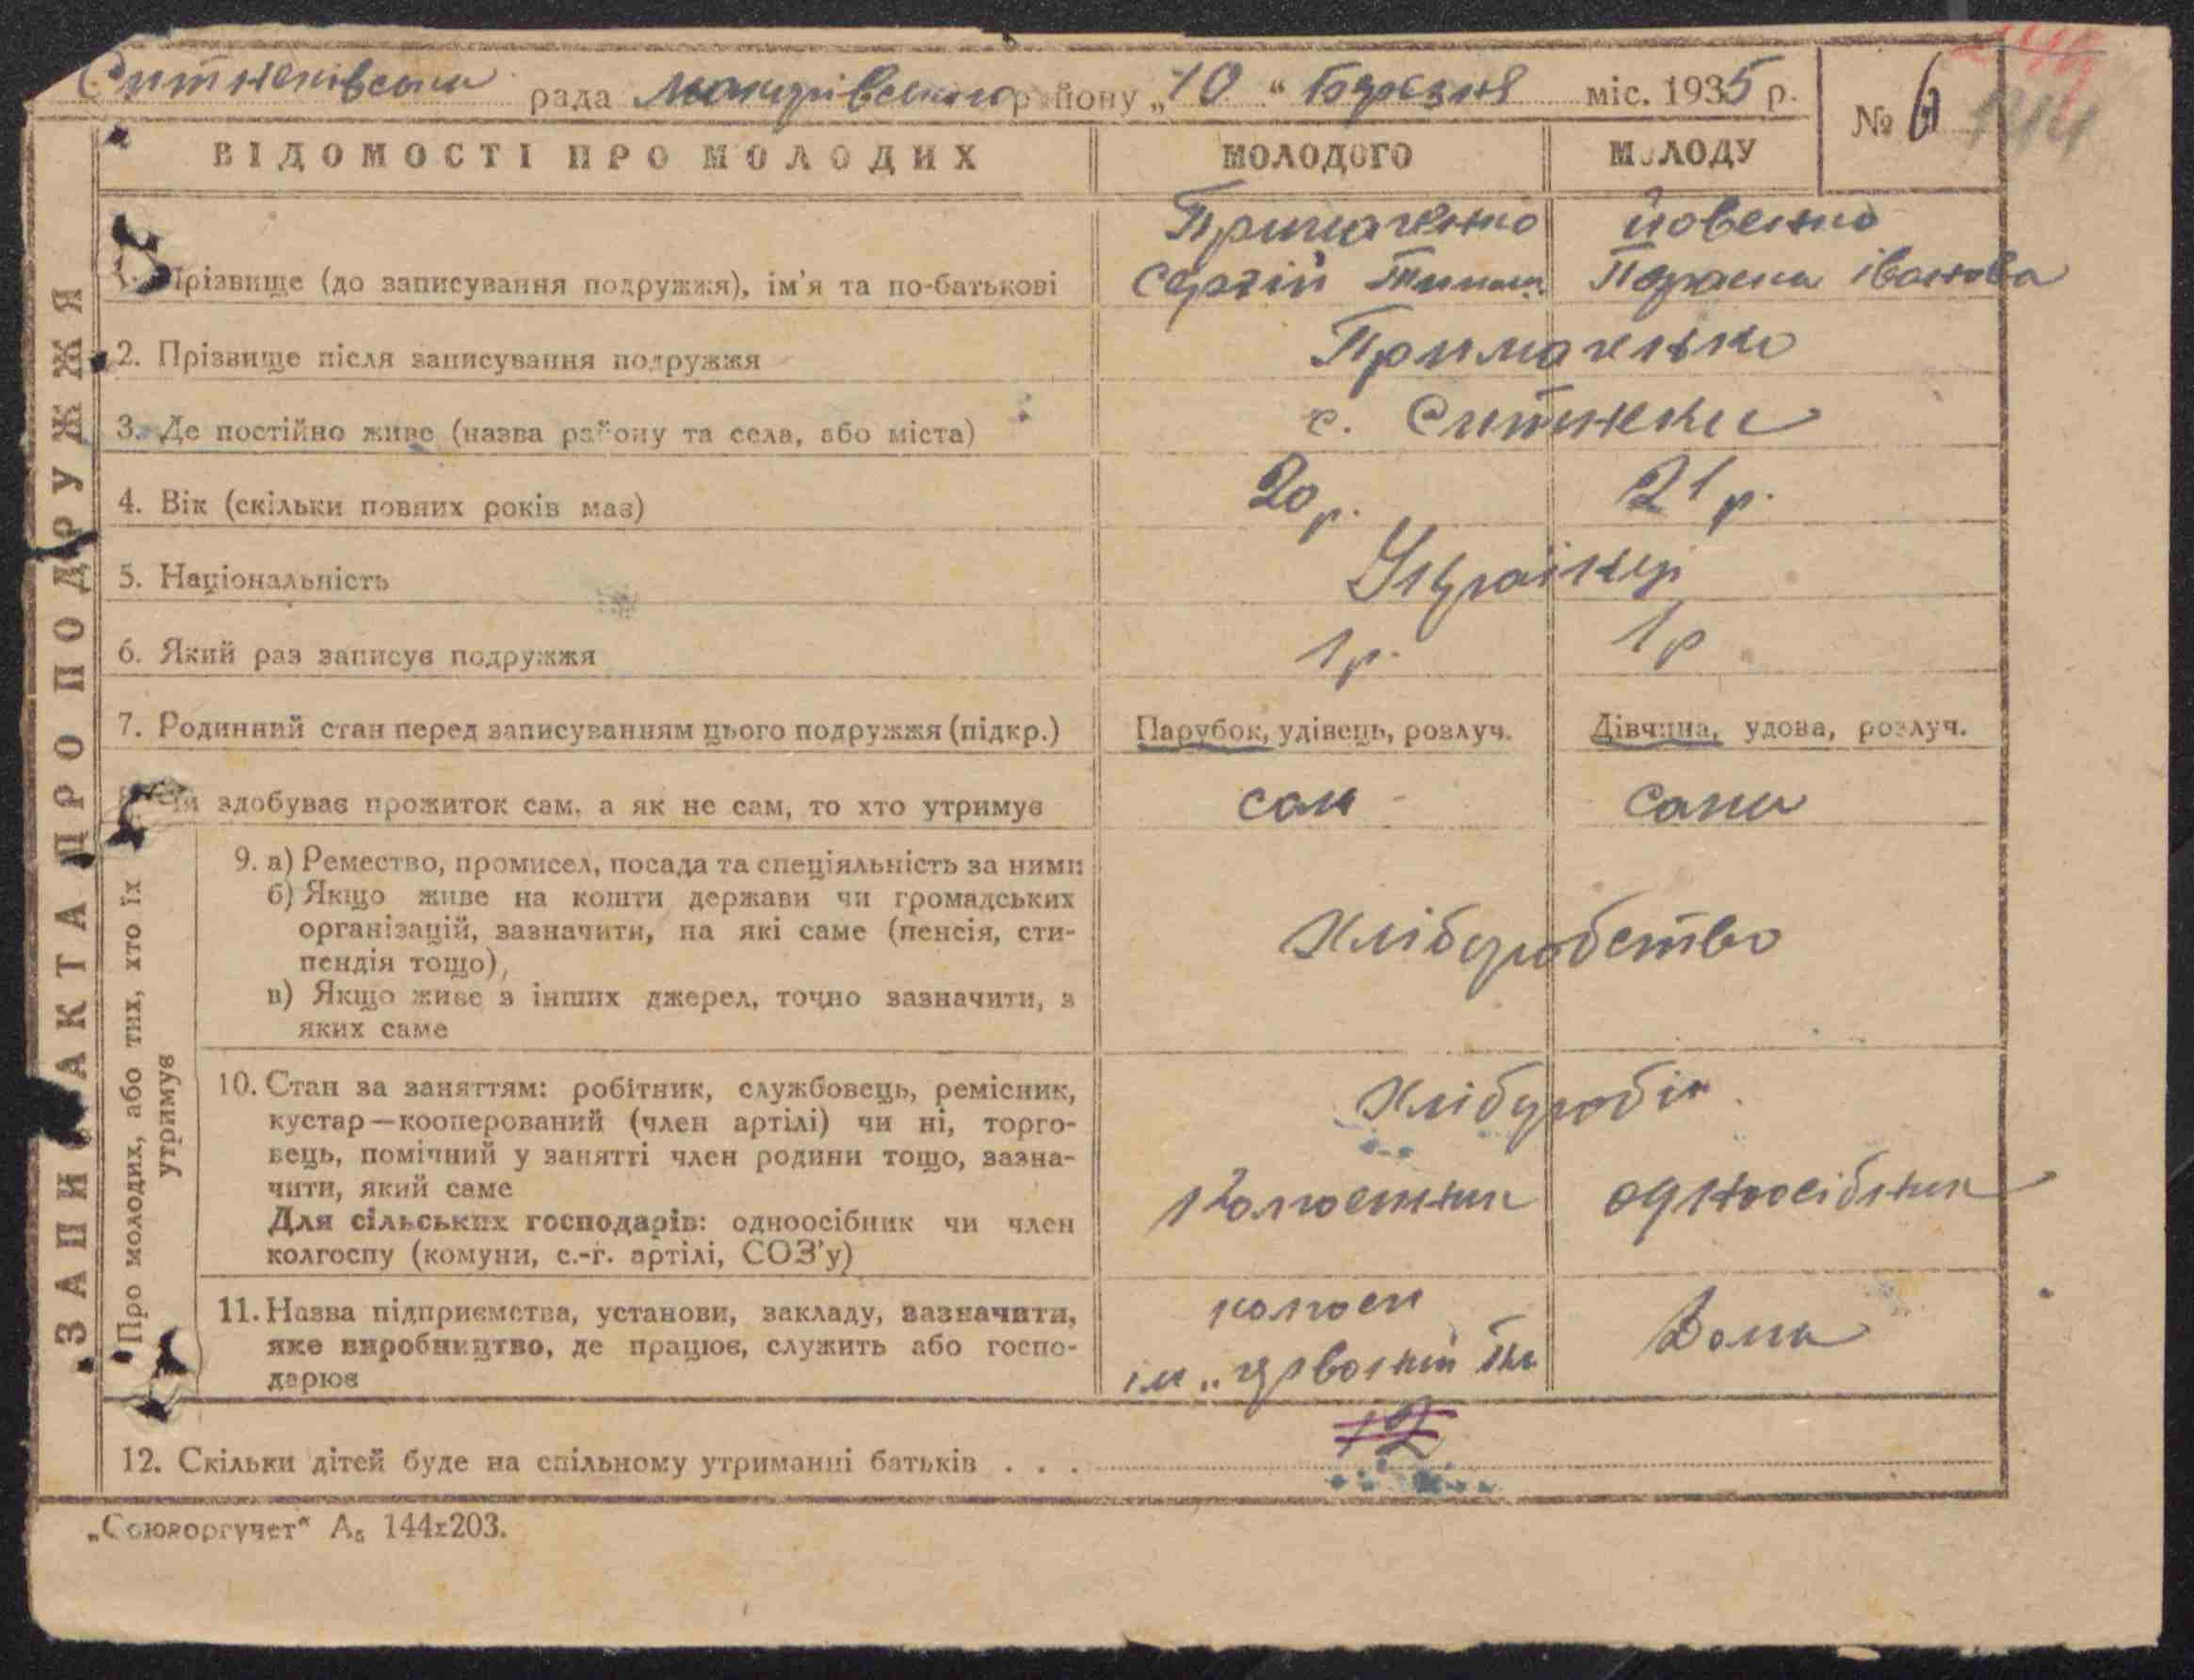 Ситняківська рада Макарівського району „10“ Березня міс. 1935 р.
№ 6
144
ВІДОМОСТІ ПРО МОЛОДИХ
МОЛОДОГО
МОЛОДУ
ЗАПИС АКТА ПРО ПОДРУЖЖЯ
Прізвище (до записування подружжя), ім'я та по-батькові
Примаченко
Сергій Тимош.
Йовенко
Параска Іванова
2. Прізвище після записування подружжя
Примаченко
3. Де постійно живе (назва району та села, або міста)
с. Ситняки
4. Вік (скільки повних років має)
20 р.
21 р.
5. Національність
Українці
6. Який раз записує подружжя
1 р.
1 р
7. Родинний стан перед записуванням цього подружжя (підкр.)
Парубок, удівець, розлуч.
Дівчина, удова, розлуч.
Чи здобуває прожиток сам, а як не сам, то хто утримує
сам
сама
Про молодих, або тих, хто їх
утримує
9. а) Ремество, промисел, посада та спеціяльність за ними
б) Якщо живе на кошти держави чи громадських
організацій, зазначити, на які саме (пенсія, сти-
пендія тощо),
в) Якщо живе з інших джерел, точно зазначити, з
яких саме
Хліборобство
10. Стан за заняттям: робітник, службовець, ремісник,
кустар—кооперований (член артілі) чи ні, торго-
вець, помічний у занятті член родини тощо, зазна-
чити, який саме
Для сільських господарів: одноосібник чи член
колгоспу (комуни, с.-г. артілі, СОЗ'у)
Хлібороби
Колгоспник
одноосібник
11. Назва підприємства, установи, закладу, зазначити,
яке виробництво, де працює, служить або госпо-
дарює
колгосп
ім „Червоний
Дома
12. Скільки дітей буде на спільному утриманні батьків . . .
12
„Союзоргучет“ А₅ 144х203.